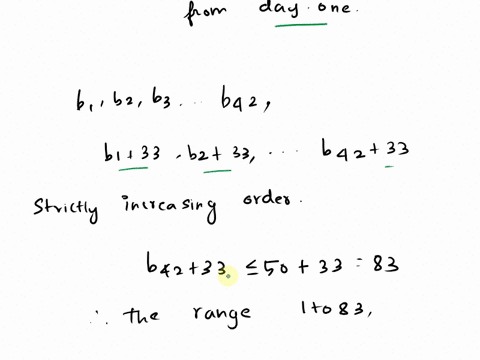 from day one.
b1, b2, b3 ... b42,
b1+33, b2+33, ... b42+33
Strictly increasing order.
b42+33 ≤ 50+33 = 83
∴ the range 1 to 83,